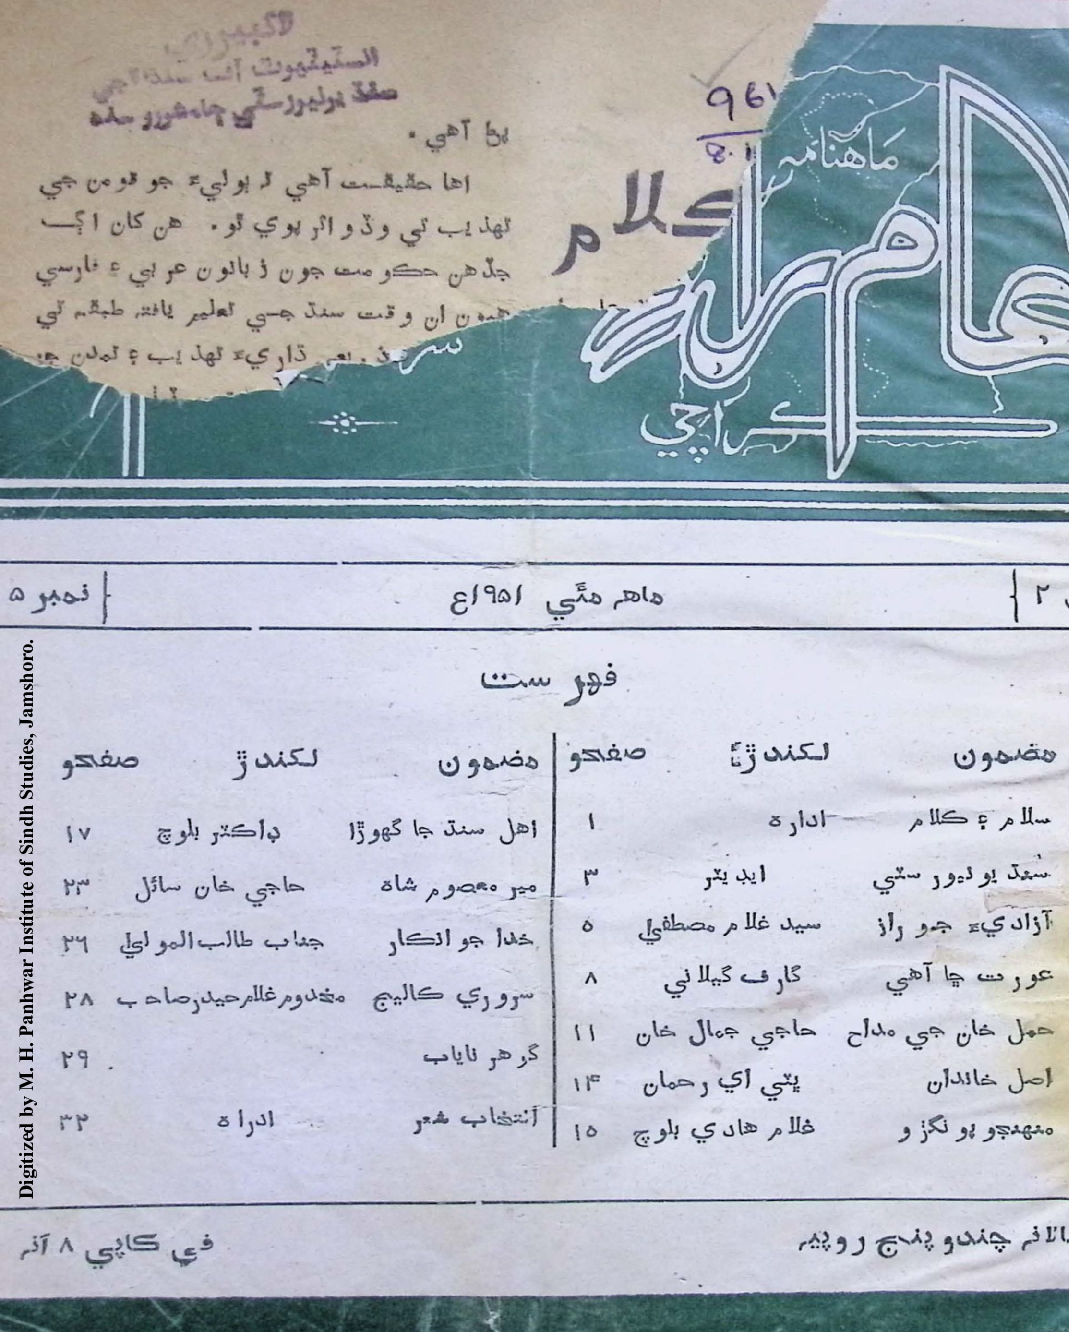 لائبريري
انسٽيٽيوٽ آف سنڌالاجي
سنڌ يونيورسٽي ڄامشورو سنڌ
961
8.1
پڻ آهي.
اها حقيقت آهي تہ ٻوليءَ جو قومن جي
تهذيب تي وڏو اثر پوي ٿو. هن کان اڳ
جڏهن حڪومت جون زبانون عربي ۽ فارسي
هيون ان وقت سنڌ جي تعليم يافتہ طبقہ تي
ڌاريءَ تهذيب ۽ تمدن جو
ماهنامه
ڪلام
عام راءِ
ڪراچي
٢
ماهہ مئي ١٩٥١ع
نمبر ٥
فهرست
مضمون لکندڙ صفحو
سلام ۽ ڪلام ادارہ ١
سنڌ يونيورسٽي ايڊيٽر ٣
آزاديءَ جو راز سيد غلام مصطفيٰ ٥
عورت ڇا آهي گارف گيلاني ٨
حمل خان جي مداح حاجي جمال خان ١١
اصل خاندان پٽي اي رحمان ١٤
منهنجو ڀونگڙو غلام هادي بلوچ ١٥
مضمون لکندڙ صفحو
اهل سنڌ جا گهوڙا ڊاڪٽر بلوچ ١٧
مير معصوم شاہ حاجي خان سائل ٢٣
خدا جو انڪار جناب طالب المولىٰ ٢٦
سروري ڪاليج مخدوم غلام حيدر صاحب ٢٨
گوهر ناياب ٢٩
انتخاب شعر ادراہ ٣٢
سالانہ چندو پنج روپيہ
في ڪاپي ٨ آنہ
Digitized by M. H. Panhwar Institute of Sindh Studies, Jamshoro.